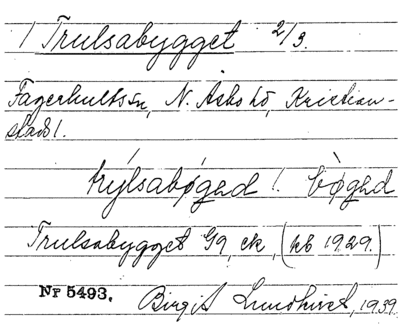 / Trulsabygget 2/3.
Fagerhults sn, N. Åsbo hd, Kristian-
stads l.
trýlsabøgəd l. bøgəd
Trulsabygget Gg, ek, (kb 1929.)
Nr 5493. Birgit Lundkvist, 1939